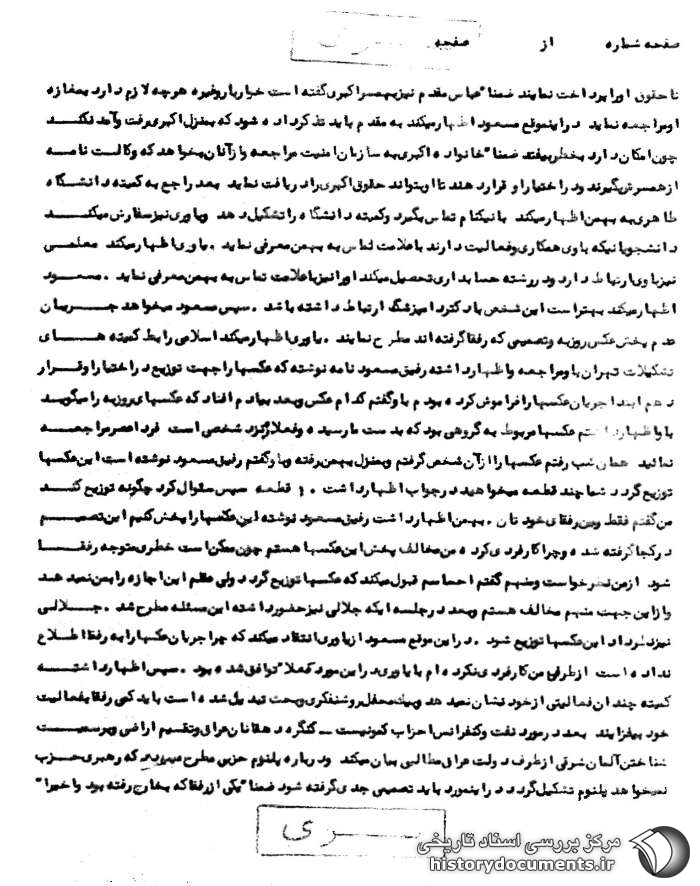 سری
صفحه شماره از صفحه
تا حقوق او را پرداخت نمایند ضمنا" عباس مقدم نیز به همسر اکبری گفته است خواربار و غیره هر چه لازم دارد به مغازه
او مراجعه نماید در این موقع مسعود اظهار میکند به مقدم باید تذکر داده شود که به منزل اکبری رفت و آمد نکند
چون امکان دارد بخطر بیفتد ضمنا" خانواده اکبری به سازمان امنیت مراجعه و از آنان بخواهد که وکالت نامه
از همسرش بگیرند و در اختیار او قرار دهند تا او بتواند حقوق اکبری را دریافت نماید بعد راجع به کمیته دانشگاه
طاهری به بهمن اظهار میکند با نیکنام تماس بگیرد و کمیته دانشگاه را تشکیل دهد و یاوری نیز سفارش میکند
دانشجویانیکه با وی همکاری و فعالیت دارند با علامت تماس به بهمن معرفی نماید . یاوری اظهار میکند معلمی
نیز با وی ارتباط دارد و در رشته حسابداری تحصیل میکند او را نیز با علامت تماس به بهمن معرفی نماید . مسعود
اظهار میکند بهتر است این شخص با دکتر دامپزشگ ارتباط داشته باشد . سپس مسعود میخواهد جریان
عدم پخش عکس روزبه و تصمیمی که رفقا گرفته اند مطرح نمایند . یاوری اظهار میکند اسلامی رابط کمیته های
تشکیلات تهران با او مراجعه و اظهار داشته رفیق مسعود نامه نوشته که عکسها را جهت توزیع در اختیار او قرار
دهم ابتدا جریان عکسها را فراموش کرده بودم با و گفتم کدام عکس و بعد بیادم افتاد که عکسهای روزبه را میگوید
با و اظهار داشتم عکسها مربوط به گروهی بود که بدست ما رسیده و فعلا نزد شخصی است فردا عصر مراجعه
نمائید همان شب رفتم عکسها را از آن شخص گرفتم و به منزل بهمن رفته و با و گفتم رفیق مسعود نوشته است این عکسها
توزیع گردد شما چند قطعه میخواهید در جواب اظهار داشت قطعه سپس سئوال کرد چگونه توزیع کنند
من گفتم فقط بین رفقای خودتان . بهمن اظهار داشت رفیق مسعود نوشته این عکسها را پخش کنیم این تصمیم
در کجا گرفته شده و چرا کار فردی کرده من مخالف پخش این عکسها هستم چون ممکن است خطری متوجه رفقا
شود از من نظر خواست و منهم گفتم احساسم قبول میکند که عکسها توزیع گردد ولی عقلم این اجازه را بمن نمیدهد
و از این جهت منهم مخالف هستم و بعد در جلسه ایکه جلالی نیز حضور داشته این مسئله مطرح شد . جلالی
نیز نظر داد این عکسها توزیع شود . در این موقع مسعود از یاوری انتقاد میکند که چرا جریان عکسها را به رفقا اطلاع
نداده است از طرفی من کار فردی نکرده ام با یاوری در این مورد کملا" توافق شده بود . سپس اظهار داشته
کمیته چندان فعالیتی از خود نشان نمیدهد و بیک محفل روشنفکری و بحث تبدیل شده است باید کمی رفقا بفعالیت
خود بیفزایند بعد در مورد نفت و کنفرانس احزاب کمونیست – کنگره دهقانان عراق و تقسیم اراضی و برسمیت
شناختن آلمان شرقی از طرف دولت عراق مطالبی بیان میکند و درباره پلنوم حزبی مطرح میدارند که رهبری حزب
نمیخواهد پلنوم تشکیل گردد در اینمورد باید تصمیمی جدی گرفته شود ضمنا" یکی از رفقا که بخارج رفته بود و اخیرا"
سری
مرکز بررسی اسناد تاریخی
historydocuments.ir